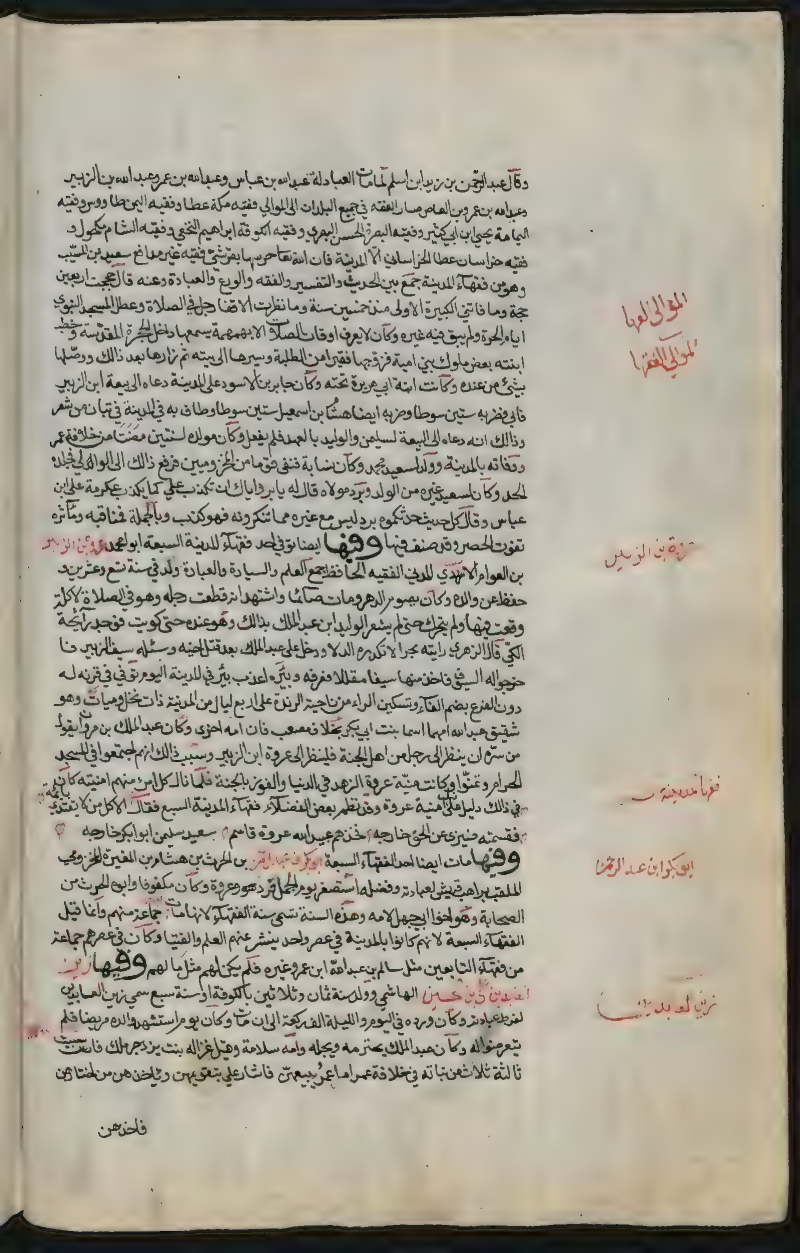 وقال عبد الرحمن بن زيد ابن اسلم لما مات العبادلة عبد الله بن عباس وعبد الله بن عمر وعبد الله بن الزبير
وعبد الله بن عمرو بن العاص صار الفقه في جميع البلدان الى الموالي فقيه مكة عطا وفقيه اليمن طاووس وفقيه
اليمامة يحيى ابن ابي كثير وفقيه البصرة الحسن البصري وفقيه الكوفة ابراهيم النخعي وفقيه الشام مكحول و
فقيه خراسان عطا الخراساني الا المدينة فان الله تعا حرسها بقرشي فقيه غير مدافع سعيد بن المسيب
وهو من فقهاء المدينة جمع بين الحديث والتفسير والفقه والورع والعبادة وعنه قال حججت اربعين
حجة وما فاتني التكبيرة الاولى منذ خمسين سنة وما نظرت الا قفا رجل في الصلاة وعطل المسجد النبوي
ايام الحرة ولم يبق فيه غيره وكان لا يعرف اوقات الصلاة الا بهمهمة يسمعها داخل الحجرة المقدسة وخطب
ابنته بعض ملوك بني امية فزوجها فقيرا من الطلبة وسيرها الى بيته ثم زارها بعد ذالك ووصلها
بشئ من عنده وكانت ابنة ابي هريرة تحته وكان جابر بن الاسود على المدينة دعاه الى بيعة ابن الزبير
فابى فضربه ستين سوطا وضربه ايضا هشام بن اسمعيل ستين سوطا وطاف به في المدينة في تبان من شعر
وذالك انه دعاه الى البيعة لسليمن والوليد بالعهد فلم يفعل وكان مولده لسنتين مضتا من خلافة عمر
ووفاته بالمدينة وولد لسعيد محمد وكان نسابة فنفى قوما من المخزوميين فرفع ذالك الى الوالي فجلده
الحد وكان لسعيد غيره من الولد وبرد مولاه قال له يا برد اياك ان تكذب علي كما يكذب عكرمة على ابن
عباس وقال كل حديث حدثكموه برد ليس مع غيره مما تنكرونه فهو كذب وبالجملة فمناقبه ومآثره
تفوت الحصر وقد صنف فيها وفيها ايضا توفي احد فقهاء المدينة السبعة ابو عبد الله عروة بن الزبير
بن العوام الاسدي المدني الفقيه الحافظ جمع العلم والسيادة والعبادة ولد في سنة تسع وعشرين و
حفظ عن والده وكان يصوم الدهر ومات صائما واشتهر انه قطعت رجله وهو في الصلاة لاكلة
وقعت فيها ولم يتحرك حتى لم يشعر الوليد ابن عبد الملك بذالك وهو عنده حتى كويت فوجد رائحة
الكي قال الزهري رايته بحرا لا تكدره الدلا ودخل على عبد الملك بعد قتل اخيه وسئله سيف الزبير فا
خرجوا له السيوف فاخذ منها سيفا مفللا فعرفه وبئره اعذب بئر في المدينة اليوم توفي في قرية له
دون الفرع بضم الفاء وتسكين الراء من ناحية الربذة على اربع ليال من المدينة ذات نخل ومياه وهو
شقيق عبد الله امهما اسما بنت ابي بكر بخلاف مصعب فان امه اخرى وكان عبد الملك بن مروان يقول
من سره ان ينظر الى رجل من اهل الجنة فلينظر الى عروة ابن الزبير وسبب ذالك انهم اجتمعوا في المسجد
الحرام وتمنوا وكانت منية عروة الزهد في الدنيا والفوز بالجنة فلما نال كل امرئ منهم امنيته كان
في ذالك دليل على امنية عروة وقد نظم بعض الفضلاء فقهاء المدينة السبع فقال الا كل من لا يقتدي بايمة
فقسمته ضيزى عن الحق خارجه فخذهم عبيد الله عروة قاسم سعيد سليمن ابو بكر خارجه
وفيها مات ايضا احد الفقهاء السبعة ابو بكر بن عبد الرحمن بن الحرث بن هشام بن المغيرة المخزومي
الملقب براهب قريش لعبادته وفضله استصغر يوم الجمل فرد هو وعروة وكان مكفوفا وابوه الحرث من
الصحابة وهو اخو ابي جهل لامه وهذه السنة تسمى سنة الفقهاء لانها مات جماعة منهم وانما قيل
الفقهاء السبعة لانهم كانوا بالمدينة في عصر واحد ينشر عنهم العلم والفتيا وكان في عصرهم جماعة
من فقهاء التابعين مثل سالم بن عبد الله ابن عمر وغيره فلم يكن لهم مثل ما لهم وفيها زين
العابدين علي بن حسين الهاشمي وولد سنة ثمان وثلاثين بالكوفة او سنة سبع سمي زين العابدين
لفرط عبادته وكان ورده في اليوم والليلة الف ركعة الى ان مات وكان يوم استشهد والده مريضا فلم
يتعرضوا له وكان عبد الملك يحترمه ويجله وامه سلامة وقيل غزاله بنت يزدجرد ملك فارس سبيت
ثالثة ثلاث من بناته في خلافة عمر اما عمر ببيعهن فاشار علي بتقويمهن وياخذهن من اختارهن
فاخذهن
الموالي لفقها
الموالي الفقها
عروة بن الزبير
فقها مدينة
ابو بكر ابن عبد الرحمن
زين لعابدين